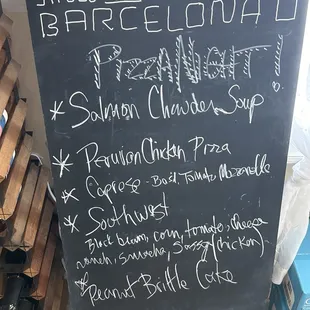 BARCELONA
Pizza Night!
* Salmon Chowder Soup
* Peruvian Chicken Pizza
* Caprese - Basil, Tomato, Mozzarella
* Southwest
Black beans, corn, tomato, cheese
ranch, sriracha, (chicken)
* Peanut Brittle Cake